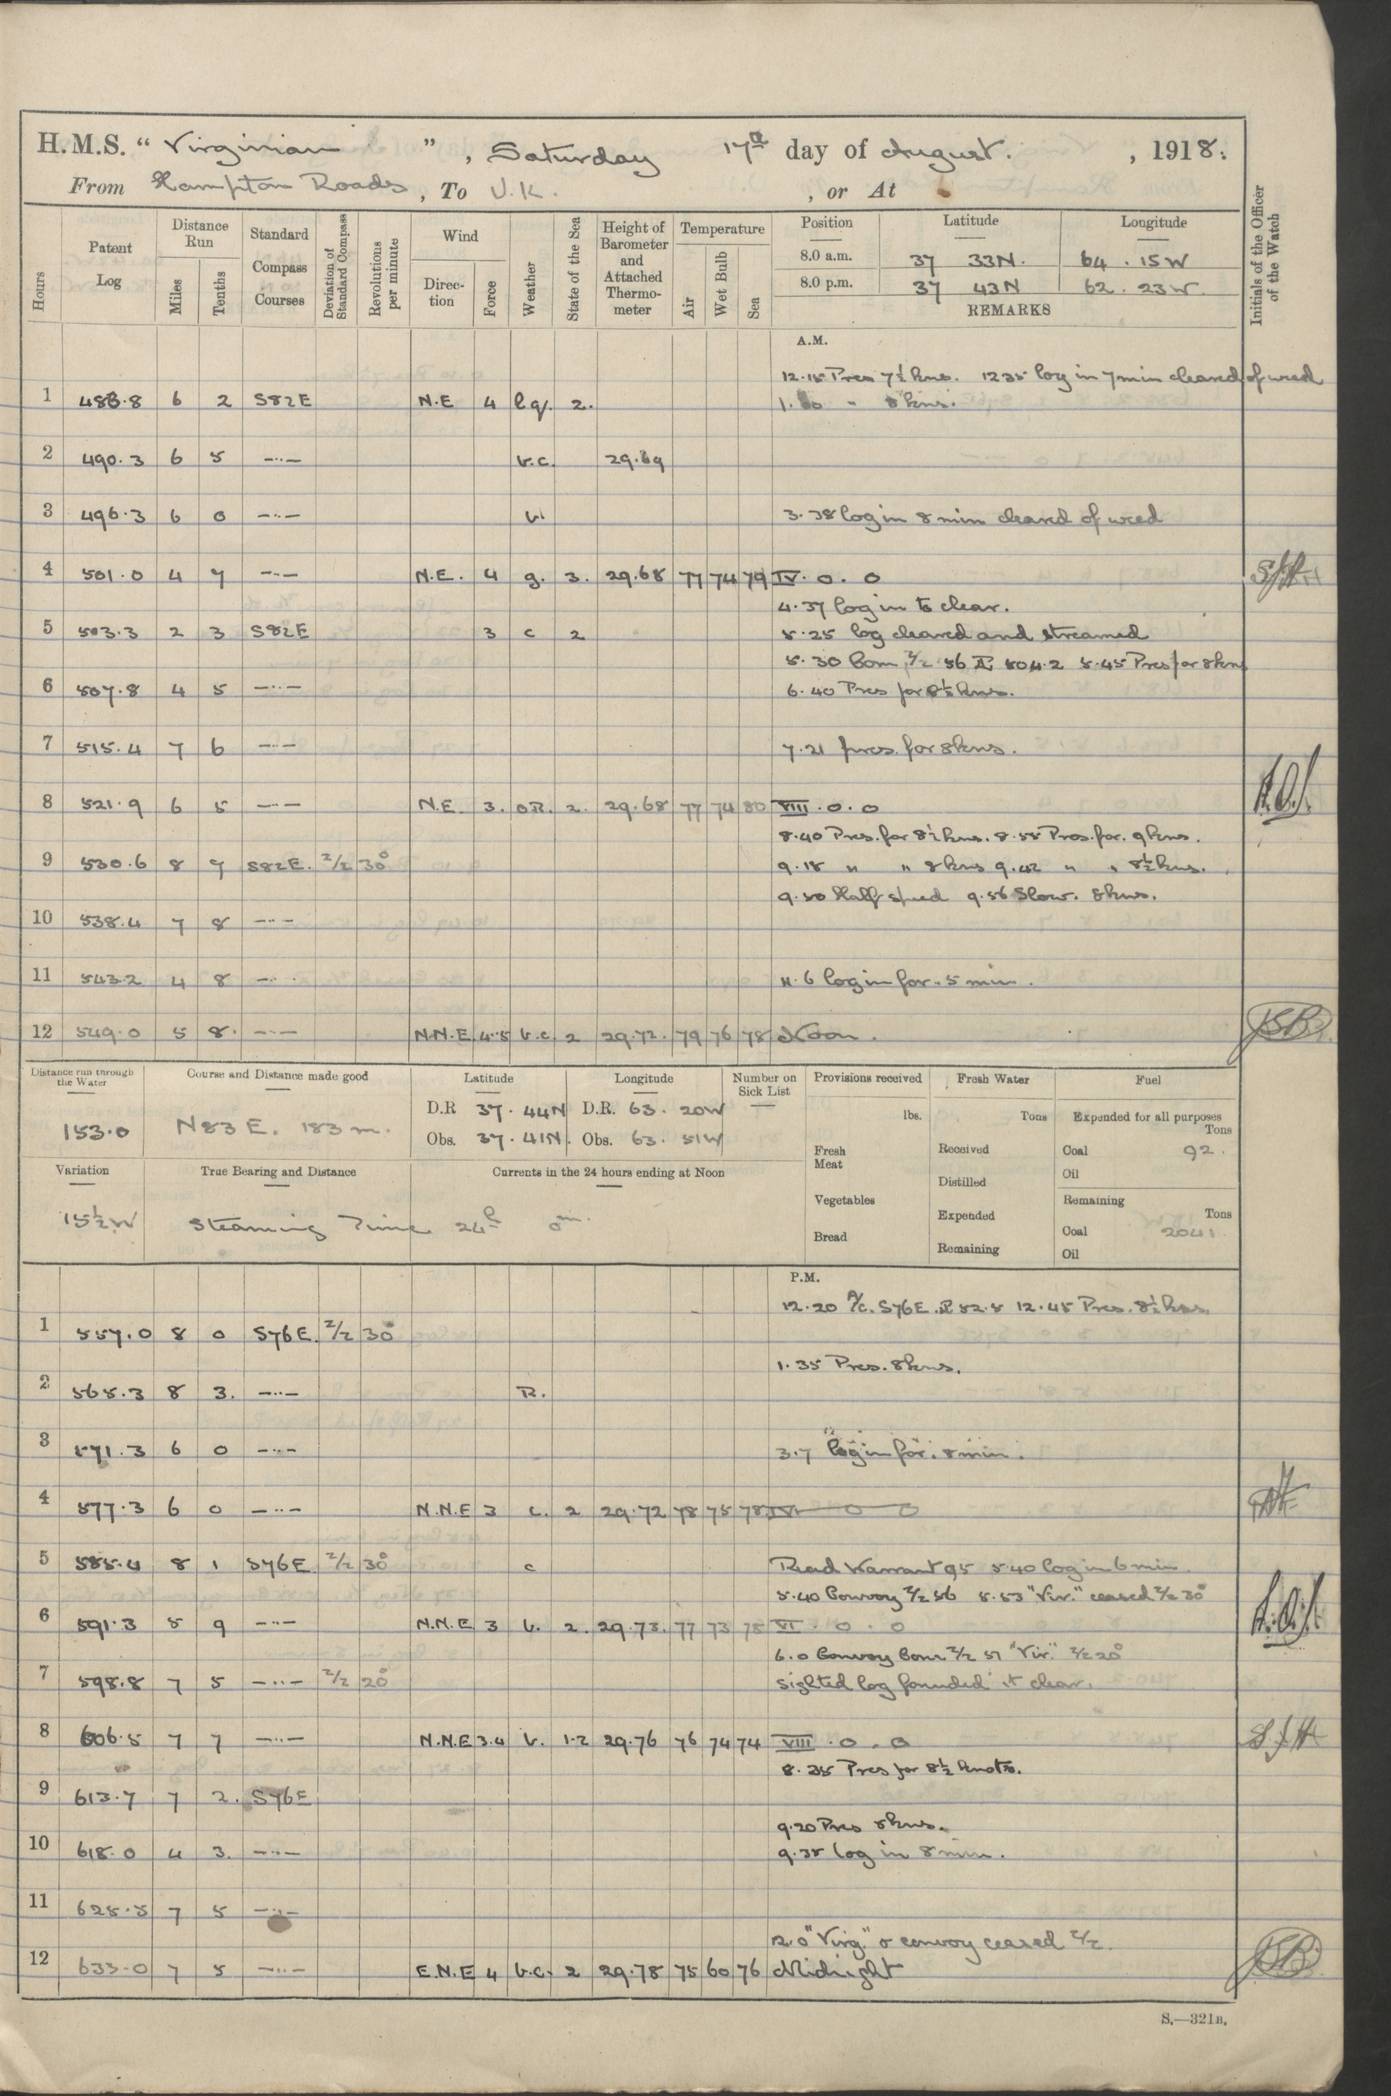 H.M.S. “ Virginian ” , Saturday 17th day of August. , 1918.
From Hampton Roads , To U.K. , or At
Hours
Patent Log
Distance Run
Miles
Tenths
Standard Compass Courses
Deviation of Standard Compass
Revolutions per minute
Wind
Direction
Force
Weather
State of the Sea
Height of Barometer and Attached Thermometer
Temperature
Air
Wet Bulb
Sea
Position Latitude Longitude
8.0 a.m. 37 33N. 64 . 15W
8.0 p.m. 37 43N 62 . 23W.
REMARKS
Initials of the Officer of the Watch
A.M.
12.15 Pres 7½ kns. 12 35 log in 7 min cleared of weed
1 483.8 6 2 S82E N.E 4 2. 1. " 8 kns.
2 490.3 6 5 —··— b.c. 29.69
3 496.3 6 0 —··— b. 3.38 log in 8 min cleared of weed
4 501.0 4 7 —··— N.E. 4 g. 3. 29.68 77 74 79 IV. 0. 0
4.37 log in to clear.
5 503.3 2 3 S82E 3 c 2 5.25 log cleared and streamed
5.30 Com Z/z 56 504.2 5.45 Pres for 8 kns
6 507.8 4 5 —··— 6.40 Pres for 8½ kns.
7 515.4 7 6 —··— 7.21 pres. for 8 kns.
8 521.9 6 5 —··— N.E. 3. OR. 2. 29.68 77 74 80 VIII . 0. 0
8.40 Pres. for 8½ kns. 8.55 Pros. for. 9 kns.
9 530.6 8 7 S82E. Z/z 30° 9.18 " " 8 kns 9.42 " " 8½ kns.
9.50 Half speed 9.56 Slow. 8 kns.
10 538.4 7 8 —··—
11 543.2 4 8 —··— 11.6 log in for 5 min.
12 549.0 5 8. —··— N.N.E 4.5 b.c. 2 29.72. 79 76 78 Noon.
Distance run through the Water
153.0
Course and Distance made good
N83E. 183 m.
Latitude Longitude
D.R 37. 44N D.R. 63. 20W
Obs. 37. 41N. Obs. 63. 51W
Number on Sick List
Variation
15½W
True Bearing and Distance
Currents in the 24 hours ending at Noon
Steaming Time 24h 0m.
Provisions received
lbs.
Fresh Meat
Vegetables
Bread
Fresh Water
Tons
Received
Distilled
Expended
Remaining
Fuel
Expended for all purposes
Tons
Coal 92.
Oil
Remaining
Tons
Coal 2041
Oil
P.M.
12.20 A/c. S76E. 52.5 12.45 Pres. 8½ kns.
1 557.0 8 0 S76E. Z/z 30°
1.35 Pres. 8 kns.
2 565.3 8 3. —··— R.
3 571.3 6 0 —··— 3.7 log in for. 8 min.
4 577.3 6 0 —··— N.N.E 3 c. 2 29.72 78 75 78 IV. 0 0
5 585.4 8 1 S76E Z/z 30° c Read Warrant 95 5.40 log in 6 min
5.40 Convoy Z/z 56 5.53 "Vir." ceased Z/z 30°
6 591.3 5 9 —··— N.N.E 3 b. 2. 29.73. 77 73 75 VI. 0. 0
6.0 Convoy Com Z/z 57 "Vir." Z/z 20°
7 598.8 7 5 —··— Z/z 20° sighted log founded it clear.
8 606.5 7 7 —··— N.N.E 3.4 b. 1.2 29.76 76 74 74 VIII . 0. 0
8.25 Pres for 8½ knots.
9 613.7 7 2. S76E
9.20 Pres 8 kns.
10 618.0 4 3. —··— 9.35 log in 8 min.
11 625.5 7 5 —··—
12.0 "Virg" & convoy ceased Z/z.
12 633.0 7 5 —··— E.N.E 4 b.c. 2 29.78 75 60 76 Midnight
S.—321B.